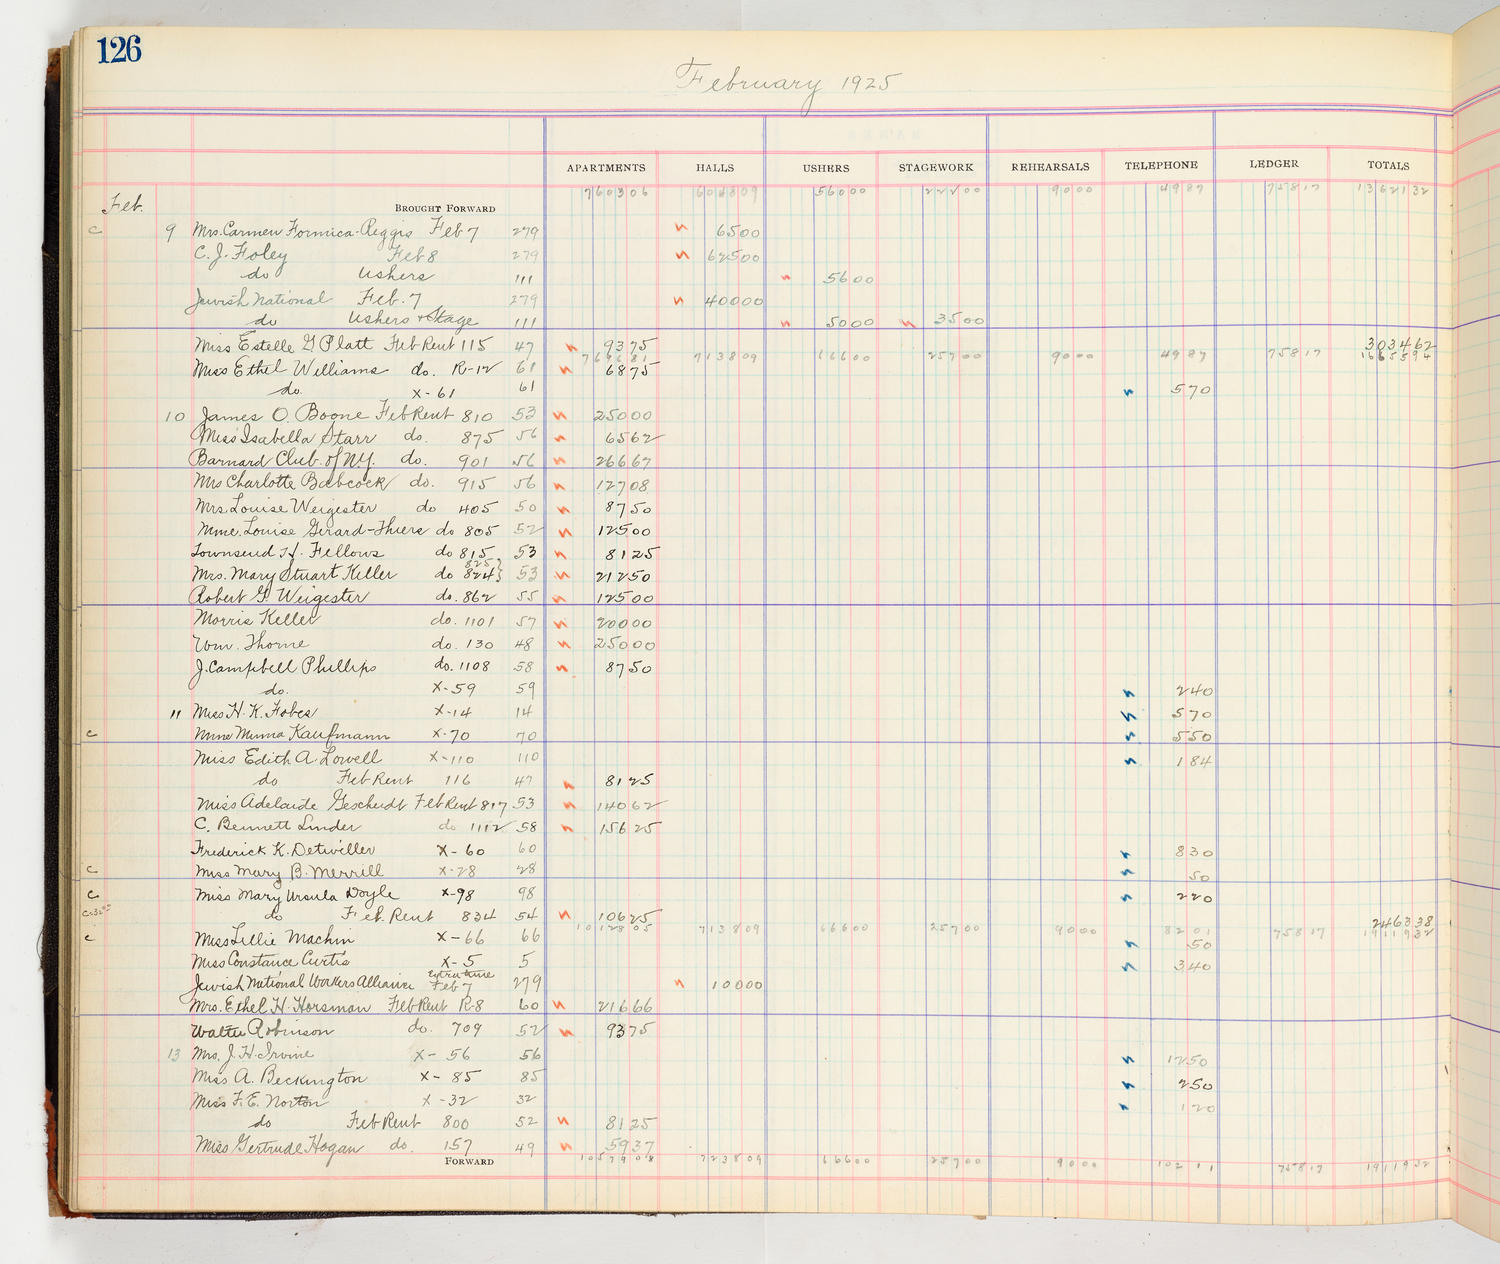 126
February 1925
APARTMENTS HALLS USHERS STAGEWORK REHEARSALS TELEPHONE LEDGER TOTALS
760306 604809 56000 22200 9000 4987 75817 1362132
Feb.
BROUGHT FORWARD
c 9 Mrs. Carmen Formica-Reggis Feb 7 279 6500
C. J. Foley Feb 8 279 62500
do Ushers 111 5600
Jewish National Feb. 7 279 40000
do Ushers + Stage 111 5000 3500
Miss Estelle G Platt Feb Rent 115 47 9375 303462
769681 713809 66600 25700 9000 4987 75817 1665594
Miss Ethel Williams do. R-12 61 6875
do. X-61 61 570
10 James O. Boone Feb Rent 810 53 25000
Miss Isabella Starr do. 875 56 6562
Barnard Club. of N.Y. do. 901 56 26667
Mrs Charlotte Babcock do. 915 56 12708
Mrs. Louise Weigester do 405 50 8750
Mme. Louise Gerard-Thiers do 805 52 12500
Townsend H. Fellows do 815 53 8125
Mrs. Mary Stuart Keller do 825 824} 53 21250
Robert G. Weigester do. 862 55 12500
Morris Keller do. 1101 57 20000
Wm. Thorne do. 130 48 25000
J. Campbell Phillips do. 1108 58 8750
do. X-59 59 240
11 Miss H. K. Fobes X-14 14 570
c Mme Minna Kaufmann X-70 70 550
Miss Edith A. Lowell X-110 110 184
do Feb Rent 116 47 8125
Miss Adelaide Gescheidt Feb Rent 817 53 14062
C. Bennett Linder do 1112 58 15625
Frederick K. Detwiller X-60 60 830
c Miss Mary B. Merrill X-28 28 50
c Miss Mary Ursula Doyle X-98 98 220
do Feb. Rent 834 54 10625 246338
1012805 713809 66600 25700 9000 8201 75817 1911932
c Miss Lillie Machin X-66 66 50
Miss Constance Curtis X-5 5 340
Jewish National Workers Alliance Extra time Feb 7 279 10000
Mrs. Ethel H. Horsman Feb Rent R-8 60 21666
Walter Robinson do. 709 52 9375
13 Mrs. J. H. Irvine X-56 56 1250
Miss A. Beckington X-85 85 250
Miss F. E. Norton X-32 32 120
do Feb Rent 800 52 8125
Miss Gertrude Hogan do. 157 49 5937
FORWARD 1057908 723809 66600 25700 9000 10211 75817 1911932